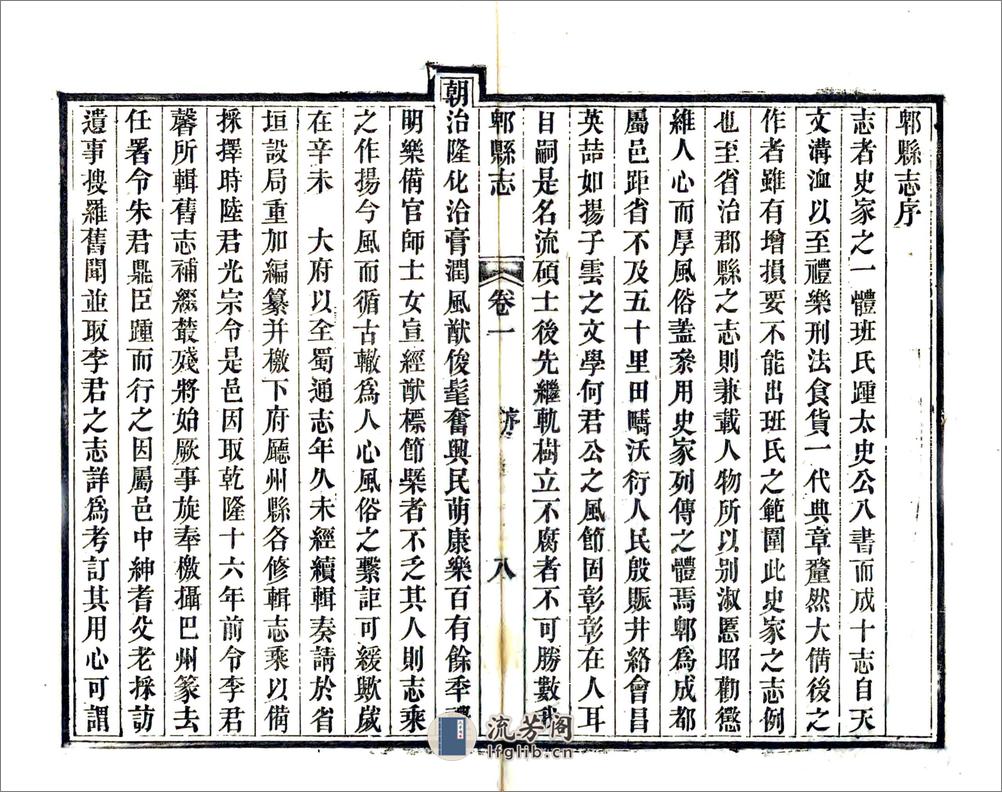 郫縣志序
志者史家之一體班氏踵太史公八書而成十志自天
文溝洫以至禮樂刑法食貨一代典章釐然大備後之
作者雖有增損要不能出班氏之範圍此史家之志例
也至省治郡縣之志則兼載人物所以别淑慝昭勸懲
維人心而厚風俗盖叅用史家列傳之體焉郫爲成都
屬邑距省不及五十里田疇沃衍人民殷賑井絡會昌
英喆如揚子雲之文學何君公之風節固彰彰在人耳
目嗣是名流碩士後先繼軌樹立不腐者不可勝數我
郫縣志 卷一 序 八
朝治隆化洽膏潤風猷俊髦奮興民萌康樂百有餘年禮
明樂備官師士女宣經猷標節槩者不乏其人則志乘
之作揚今風而循古轍爲人心風俗之繫詎可緩歟歲
在辛未 大府以全蜀通志年久未經續輯奏請於省
垣設局重加編纂并檄下府廳州縣各修輯志乘以備
採擇時陸君光宗令是邑因取乾隆十六年前令李君
馨所輯舊志補綴叢殘將始厥事旋奉檄攝巴州篆去
任署令朱君鼎臣踵而行之因屬邑中紳耆父老採訪
遺事搜羅舊聞並取李君之志詳爲考訂其用心可謂
流芳阁
lfglib.cn